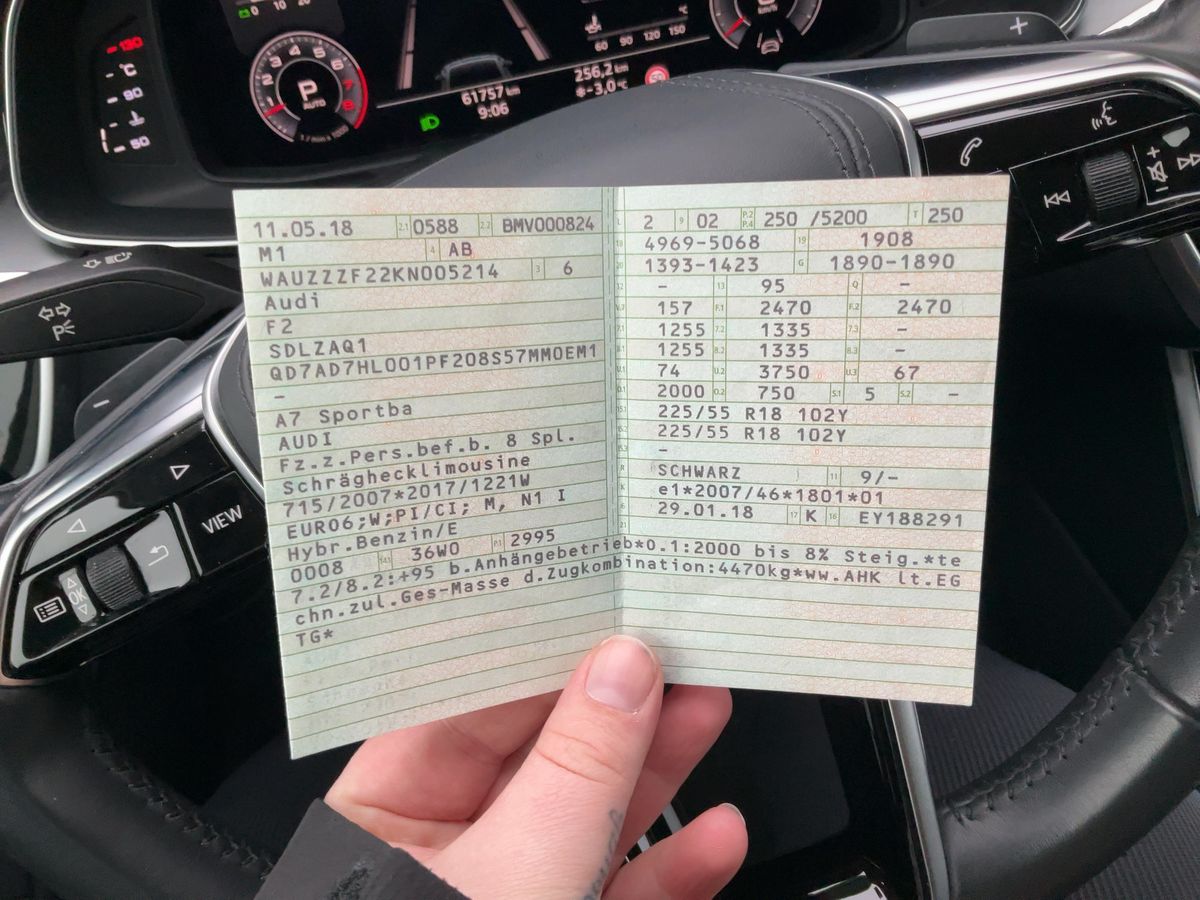 0 10
-130
4 5
3 6
2 7
1 8
P
AUTO
1 / min x 1000
- °C
- 90
- 50
61757 km
9:06
256,2 km
-3,0 °C
60 90 120 150
°C
km/h
+
-
VIEW
OK
11.05.18 2.1 0588 2.2 BMV000824
M1 4 AB
WAUZZZF22KN005214 3 6
Audi
F2
SDLZAQ1
QD7AD7HL001PF208S57MM0EM1
-
A7 Sportba
AUDI
Fz.z.Pers.bef.b. 8 Spl.
Schräghecklimousine
715/2007*2017/1221W
EURO6;W;PI/CI; M, N1 I
Hybr.Benzin/E
0008 14.1 36W0 P.1 2995
L 2 9 02 P.2 P.4 250 /5200 T 250
18 4969-5068 19 1908
20 1393-1423 G 1890-1890
12 - 13 95 Q -
V.7 157 F.1 2470 F.2 2470
7.1 1255 7.2 1335 7.3 -
8.1 1255 8.2 1335 8.3 -
U.1 74 U.2 3750 U.3 67
O.1 2000 O.2 750 S.1 5 S.2 -
15.1 225/55 R18 102Y
15.2 225/55 R18 102Y
15.3 -
R SCHWARZ 11 9/-
K e1*2007/46*1801*01
6 29.01.18 17 K 16 EY188291
21
7.2/8.2:+95 b.Anhängebetrieb*0.1:2000 bis 8% Steig.*te
chn.zul.Ges-Masse d.Zugkombination:4470kg*ww.AHK lt.EG
TG*